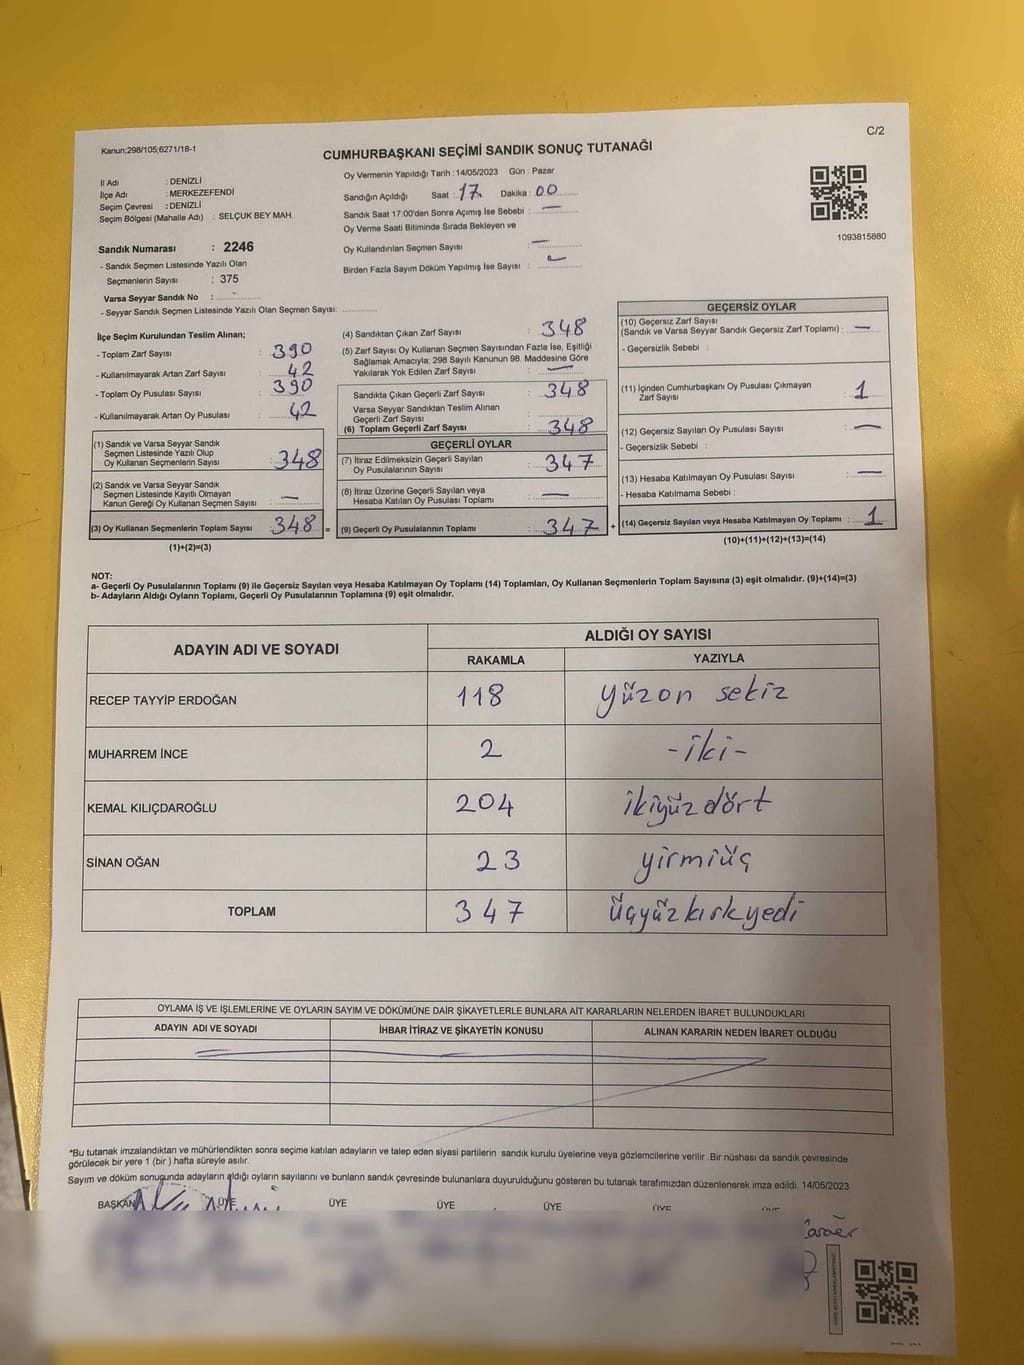 C/2
Kanun;298/105;6271/18-1
CUMHURBAŞKANI SEÇİMİ SANDIK SONUÇ TUTANAĞI
İl Adı : DENİZLİ
İlçe Adı : MERKEZEFENDİ
Seçim Çevresi : DENİZLİ
Seçim Bölgesi (Mahalle Adı) : SELÇUK BEY MAH.
Sandık Numarası : 2246
- Sandık Seçmen Listesinde Yazılı Olan
Seçmenlerin Sayısı : 375
Varsa Seyyar Sandık No : -
- Seyyar Sandık Seçmen Listesinde Yazılı Olan Seçmen Sayısı:
Oy Vermenin Yapıldığı Tarih : 14/05/2023 Gün : Pazar
Sandığın Açıldığı Saat : 17 Dakika : 00
Sandık Saat 17:00'den Sonra Açımış İse Sebebi : —
Oy Verme Saati Bitiminde Sırada Bekleyen ve
Oy Kullandırılan Seçmen Sayısı : —
Birden Fazla Sayım Döküm Yapılmış İse Sayısı :
1093815880
İlçe Seçim Kurulundan Teslim Alınan;
- Toplam Zarf Sayısı : 390
- Kullanılmayarak Artan Zarf Sayısı : 42
- Toplam Oy Pusulası Sayısı : 390
- Kullanılmayarak Artan Oy Pusulası : 42
(1) Sandık ve Varsa Seyyar Sandık
Seçmen Listesinde Yazılı Olup
Oy Kullanan Seçmenlerin Sayısı : 348
(2) Sandık ve Varsa Seyyar Sandık
Seçmen Listesinde Kayıtlı Olmayan
Kanun Gereği Oy Kullanan Seçmen Sayısı : —
(3) Oy Kullanan Seçmenlerin Toplam Sayısı : 348 =
(1)+(2)=(3)
(4) Sandıktan Çıkan Zarf Sayısı : 348
(5) Zarf Sayısı Oy Kullanan Seçmen Sayısından Fazla İse, Eşitliği
Sağlamak Amacıyla; 298 Sayılı Kanunun 98. Maddesine Göre
Yakılarak Yok Edilen Zarf Sayısı : —
Sandıkta Çıkan Geçerli Zarf Sayısı : 348
Varsa Seyyar Sandıktan Teslim Alınan
Geçerli Zarf Sayısı :
(6) Toplam Geçerli Zarf Sayısı : 348
GEÇERLİ OYLAR
(7) İtiraz Edilmeksizin Geçerli Sayılan
Oy Pusulalarının Sayısı : 347
(8) İtiraz Üzerine Geçerli Sayılan veya
Hesaba Katılan Oy Pusulası Toplamı : —
(9) Geçerli Oy Pusulalarının Toplamı : 347 +
GEÇERSİZ OYLAR
(10) Geçersiz Zarf Sayısı
(Sandık ve Varsa Seyyar Sandık Geçersiz Zarf Toplamı) : —
- Geçersizlik Sebebi :
(11) İçinden Cumhurbaşkanı Oy Pusulası Çıkmayan
Zarf Sayısı : 1
(12) Geçersiz Sayılan Oy Pusulası Sayısı : —
- Geçersizlik Sebebi :
(13) Hesaba Katılmayan Oy Pusulası Sayısı : —
- Hesaba Katılmama Sebebi :
(14) Geçersiz Sayılan veya Hesaba Katılmayan Oy Toplamı : 1
(10)+(11)+(12)+(13)=(14)
NOT:
a- Geçerli Oy Pusulalarının Toplamı (9) ile Geçersiz Sayılan veya Hesaba Katılmayan Oy Toplamı (14) Toplamları, Oy Kullanan Seçmenlerin Toplam Sayısına (3) eşit olmalıdır. (9)+(14)=(3)
b- Adayların Aldığı Oyların Toplamı, Geçerli Oy Pusulalarının Toplamına (9) eşit olmalıdır.
ADAYIN ADI VE SOYADI ALDIĞI OY SAYISI
RAKAMLA YAZIYLA
RECEP TAYYİP ERDOĞAN 118 yüzon sekiz
MUHARREM İNCE 2 -iki-
KEMAL KILIÇDAROĞLU 204 ikiyüz dört
SİNAN OĞAN 23 yirmiüç
TOPLAM 347 üçyüzkırkyedi
OYLAMA İŞ VE İŞLEMLERİNE VE OYLARIN SAYIM VE DÖKÜMÜNE DAİR ŞİKAYETLERLE BUNLARA AİT KARARLARIN NELERDEN İBARET BULUNDUKLARI
ADAYIN ADI VE SOYADI İHBAR İTİRAZ VE ŞİKAYETİN KONUSU ALINAN KARARIN NEDEN İBARET OLDUĞU
*Bu tutanak imzalandıktan ve mühürlendikten sonra seçime katılan adayların ve talep eden siyasi partilerin sandık kurulu üyelerine veya gözlemcilerine verilir .Bir nüshası da sandık çevresinde
görülecek bir yere 1 (bir ) hafta süreyle asılır.
Sayım ve döküm sonugunda adayların aldığı oyların sayılarını ve bunların sandık çevresinde bulunanlara duyurulduğunu gösteren bu tutanak tarafımızdan düzenlenerek imza edildi. 14/05/2023
BAŞKAN ÜYE ÜYE ÜYE ÜYE